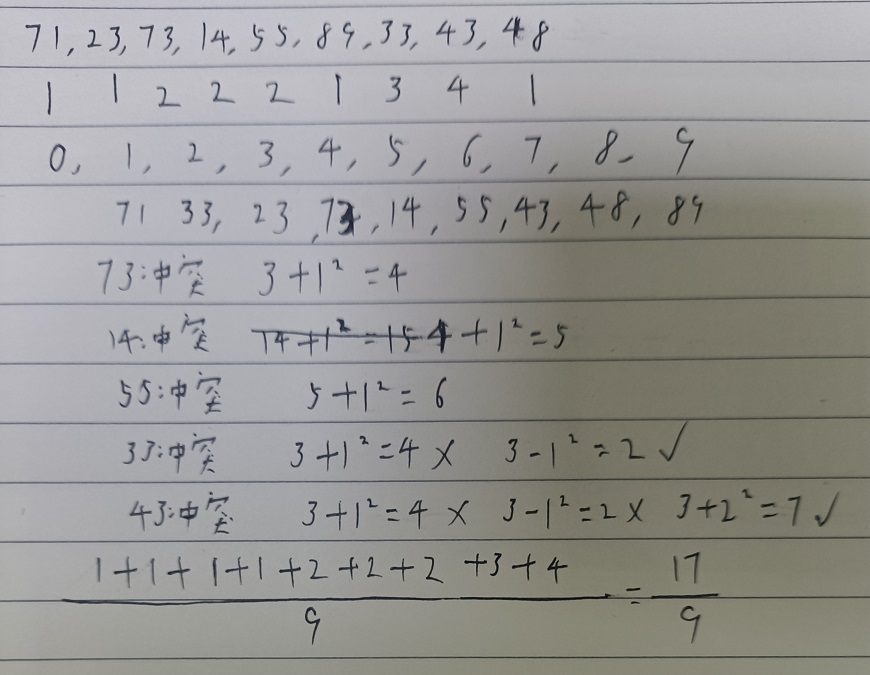 71, 23, 73, 14, 55, 89, 33, 43, 48
1 1 2 2 2 1 3 4 1
0, 1, 2, 3, 4, 5, 6, 7, 8, 9
71 33, 23, 73, 14, 55, 43, 48, 89
73:冲突 3+1²=4
14:冲突 14+1²=15 4+1²=5
55:冲突 5+1²=6
33:冲突 3+1²=4 × 3-1²=2 ✓
43:冲突 3+1²=4 × 3-1²=2 × 3+2²=7 ✓
1+1+1+1+2+2+2+3+4 / 9 = 17 / 9